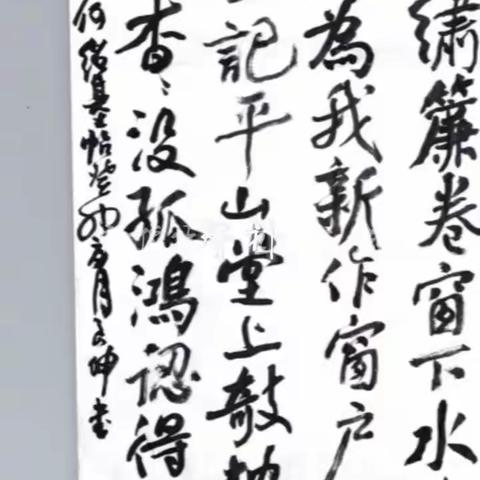 繡簾卷窗下水
為我新作窗户
記平山堂上敧枕
杳〻没孤鴻認得
何紹基帖癸卯月坤書